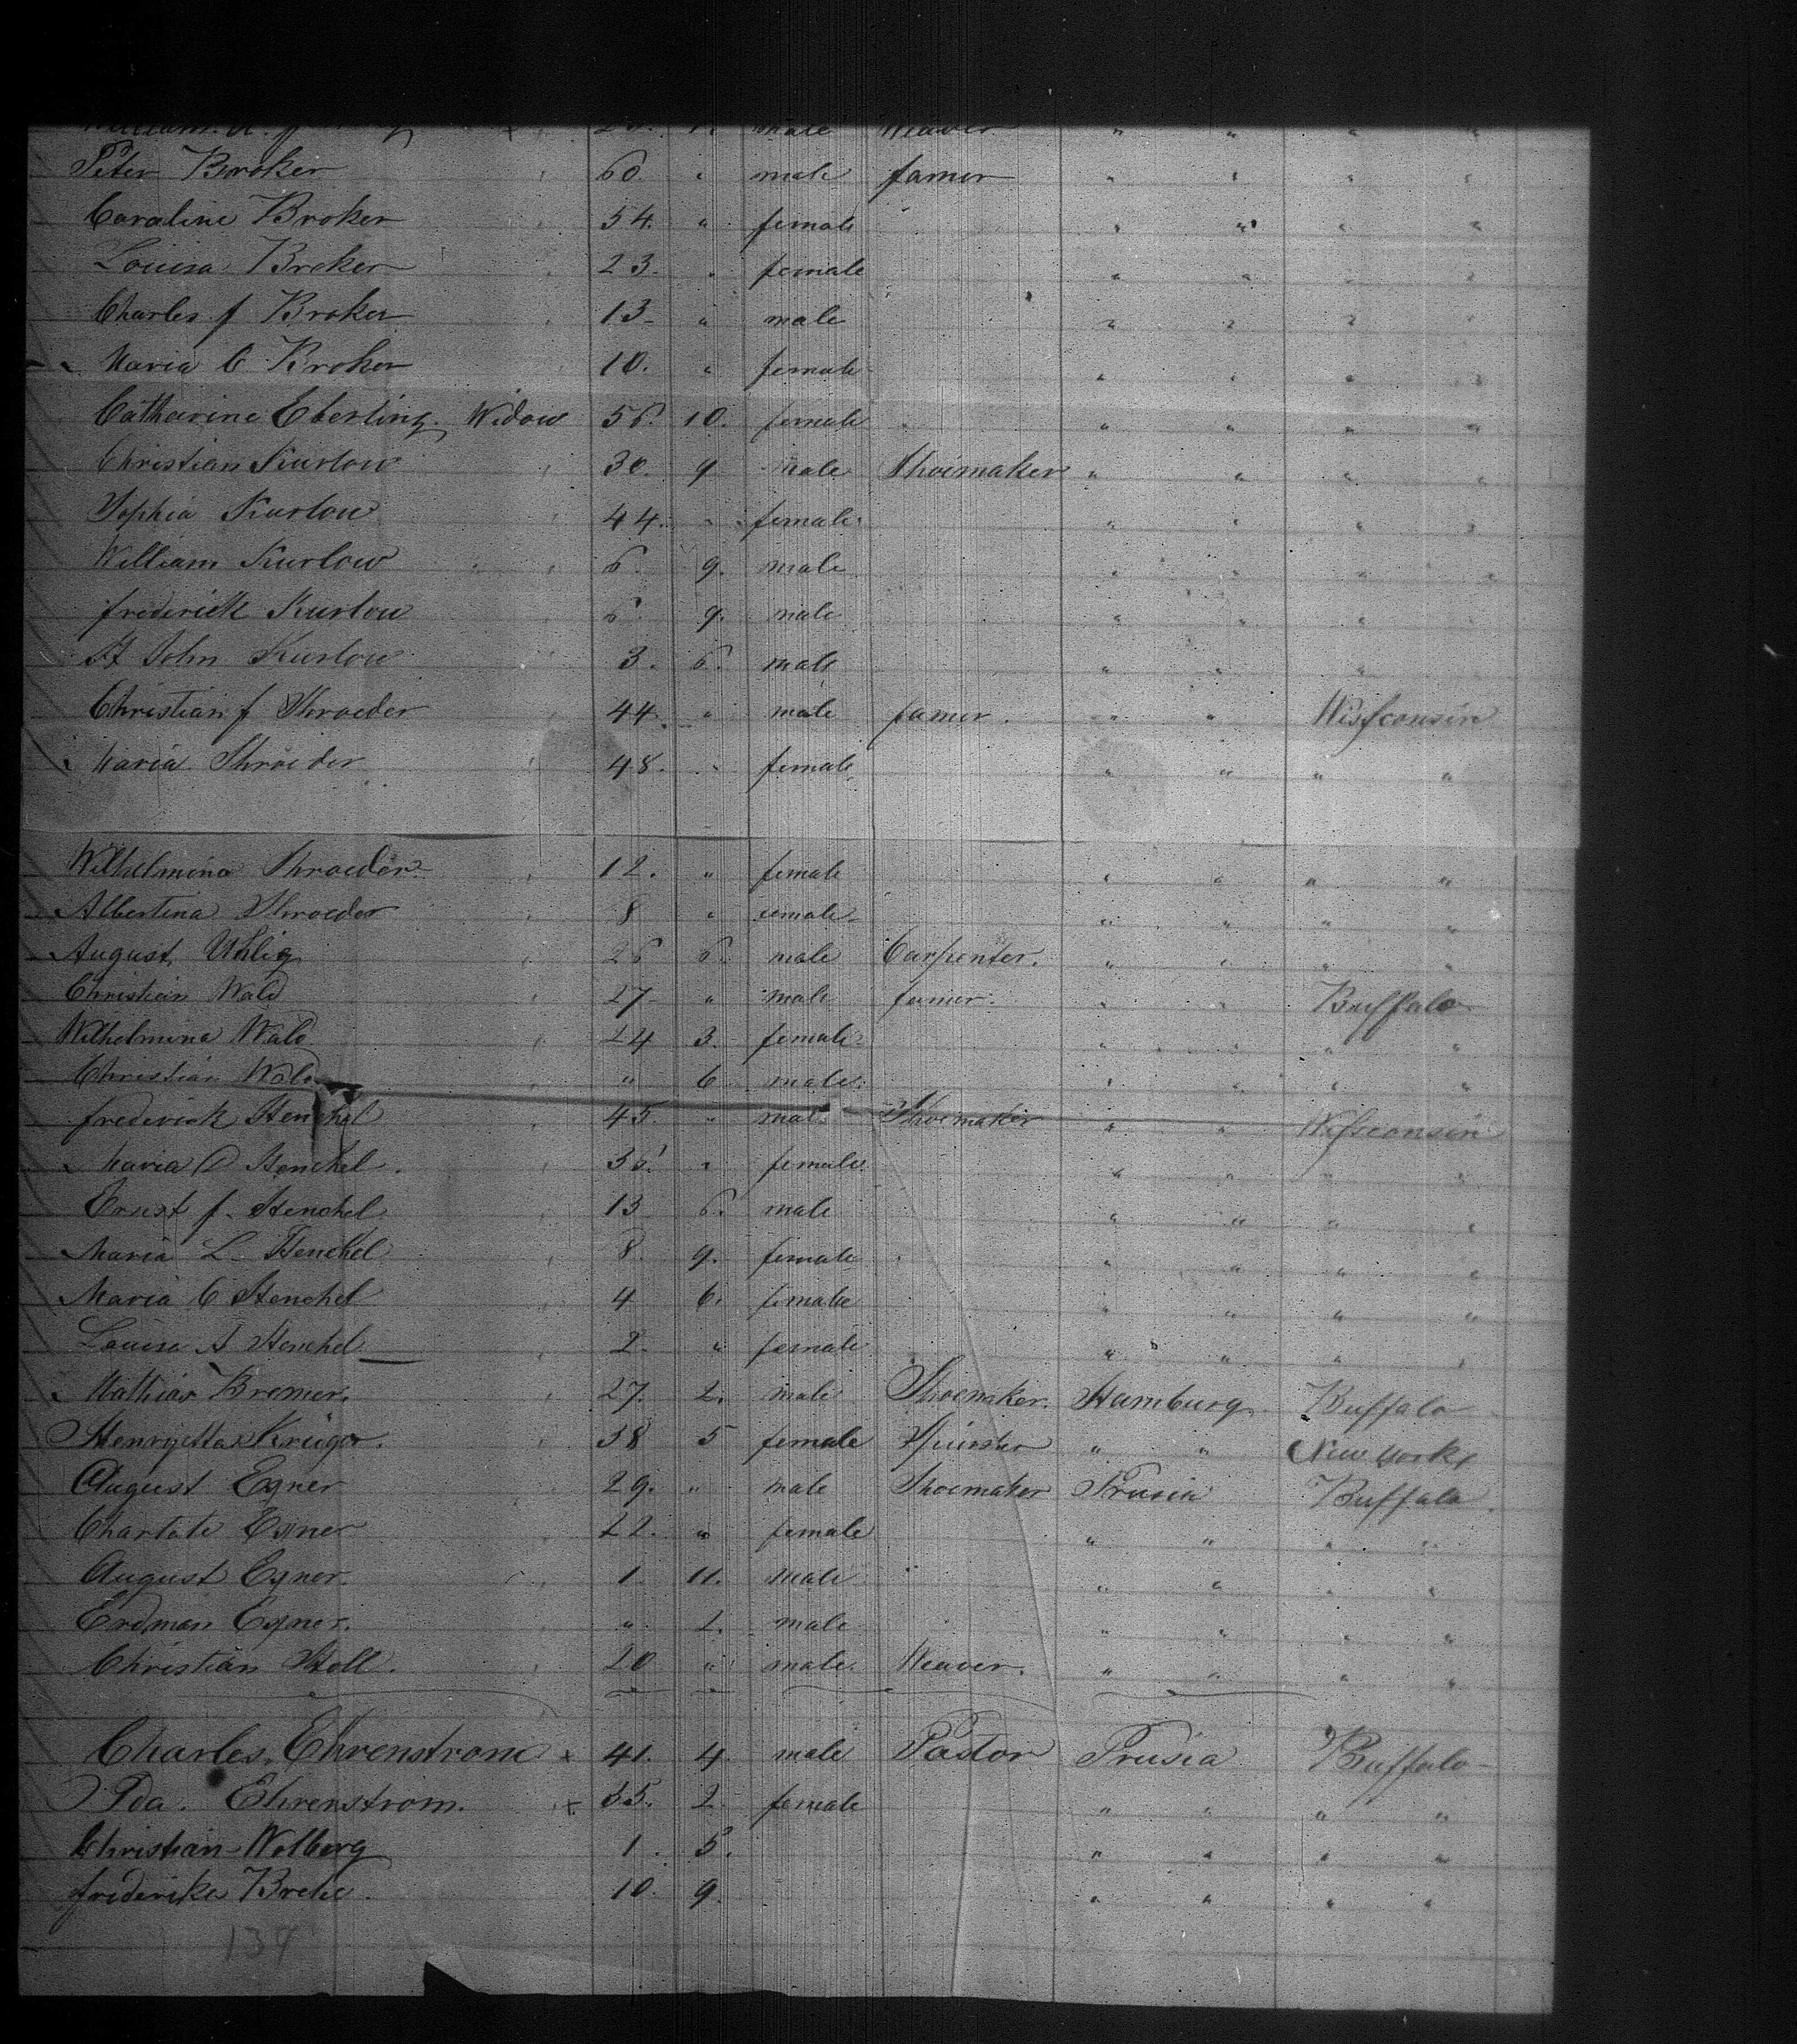 male Weaver " " " "
Peter Broker 60. " male famer " " " "
Caroline Broker 54. " female " " " "
Louisa Broker 23. " female " " " "
Charles f Broker 13 " male " " " "
Maria C Broker 10. " female " " " "
Catharine Eberling. Widow 56. 10. female " " " "
Christian Kurlow 30. 9 male Shoemaker " " " "
Sophia Kurlow 44. " female. " " " "
William Kurlow 6. 9. male " " " "
frederick Kurlow 6 9. male " " " "
John Kurlow 3. 6. male " " "
Christian f Shroeder 44. " male famer. " " Wisconsin
Maria Shroeder 48. " female " " " "
Wilhelmina Shroeder 12. " female " " " "
Albertina Shroeder 8 " female " " " "
August Uhlig 26 6. male Carpenter. " " " "
Christian Wald 27 " male famer. " " Buffalo
Wilhelmina Wald 24 3. female " " " "
Christian Wald " 6 male. " " " "
frederick Henchel 45. " male Shoemaker " " Wisconsin
Maria D Henchel. 35. " female. " " " "
Ernst f. Henchel 13 6. male " " " "
Maria L. Henchel 8. 9. female " " " "
Maria C Henchel 4 6. female " " " "
Louisa A Henchel 2. " female " " " "
Mathias Bremer. 27. 2. male Shoemaker. Hamburg Buffalo
Henryetta Krüger. 38 5 female Spinster " " New York
August Exner 29. " male Shoemaker Prusia Buffalo.
Charlote Exner 22. " female " " " "
August Exner. 1 11. male " " " "
Erdman Exner. " 2. male " " " "
Christian Holl. 20 " male. Weaver. " " " "
Charles. Ehrenstrom x 41. 4. male Pastor Prusia Buffalo
Ida. Ehrenstrom. x 35. 2. female " " " "
Christian Wolberg 1. 5. " " " "
frederika 10. 9. " " " "
134